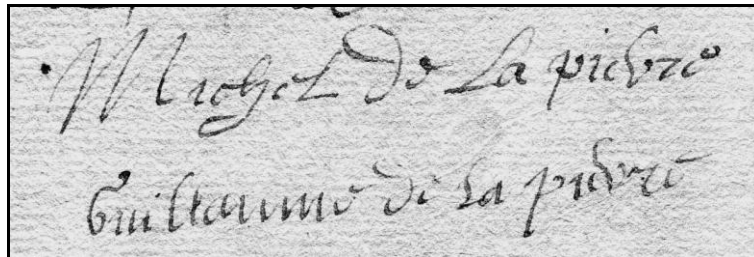 Michel de La pierre
Guillaume de La pierre